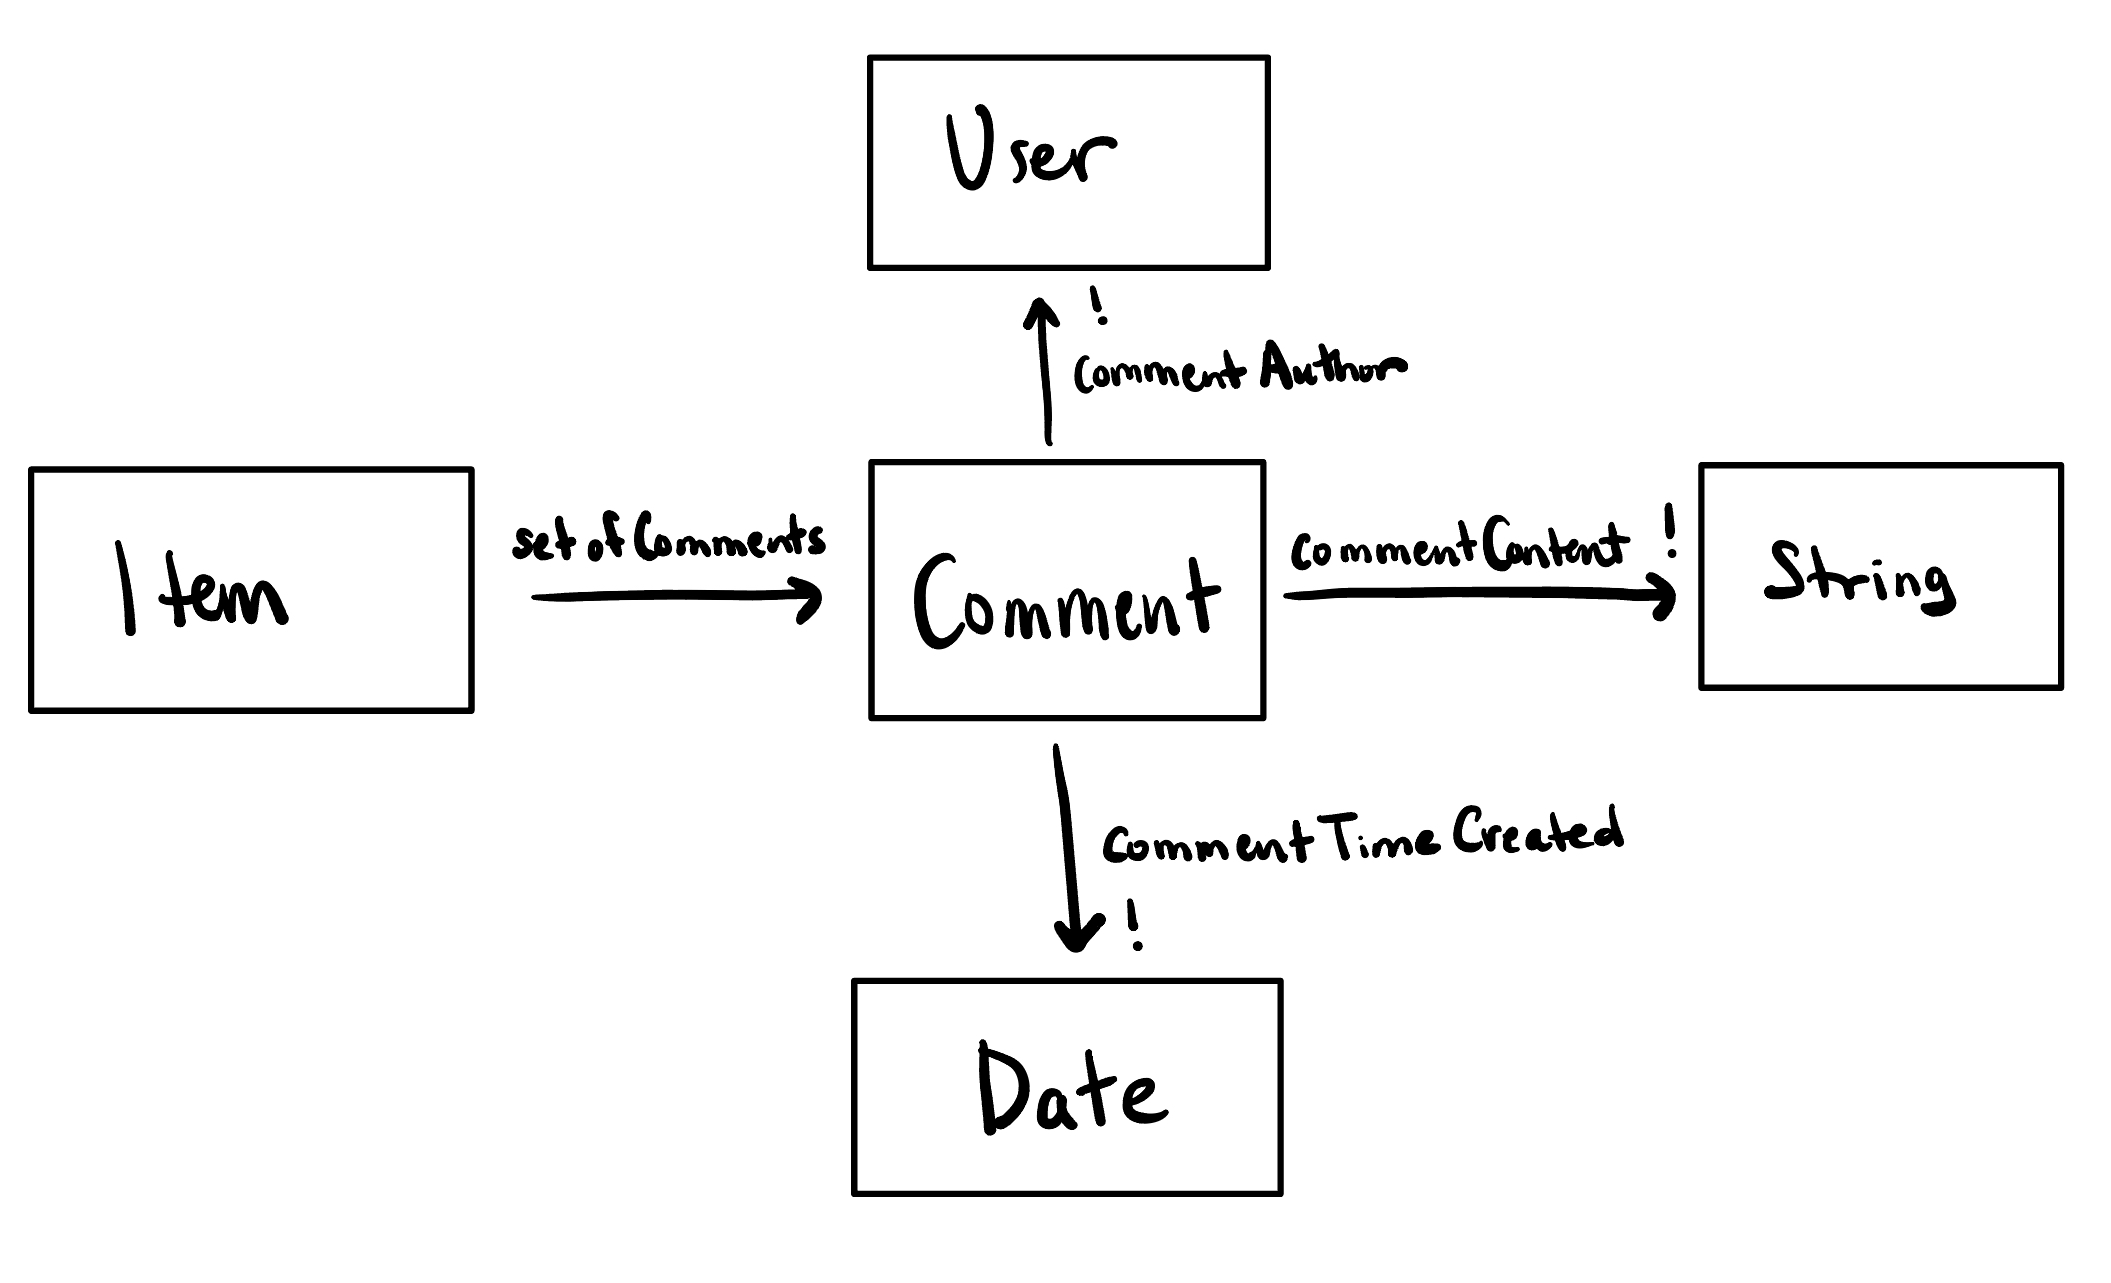 User
!
commentAuthor
Item
setofComments
Comment
commentContent !
String
commentTimeCreated
!
Date